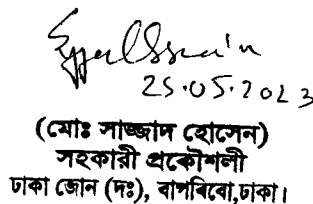 25.05.2023
(মোঃ সাজ্জাদ হোসেন)
সহকারী প্রকৌশলী
ঢাকা জোন (দঃ), বাপবিবো,ঢাকা।